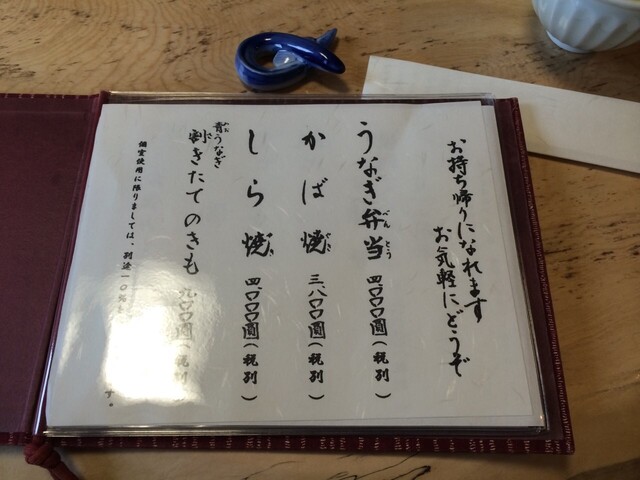 お持ち帰りになれます
お気軽にどうぞ
うなぎ弁当 四〇〇〇圓(税別)
べんとう
かば焼 三八〇〇圓(税別)
しら焼 四〇〇〇圓(税別)
青うなぎ
割きたてのきも 九〇〇圓(税別)
個室使用に限りましては、別途一〇%を
す。